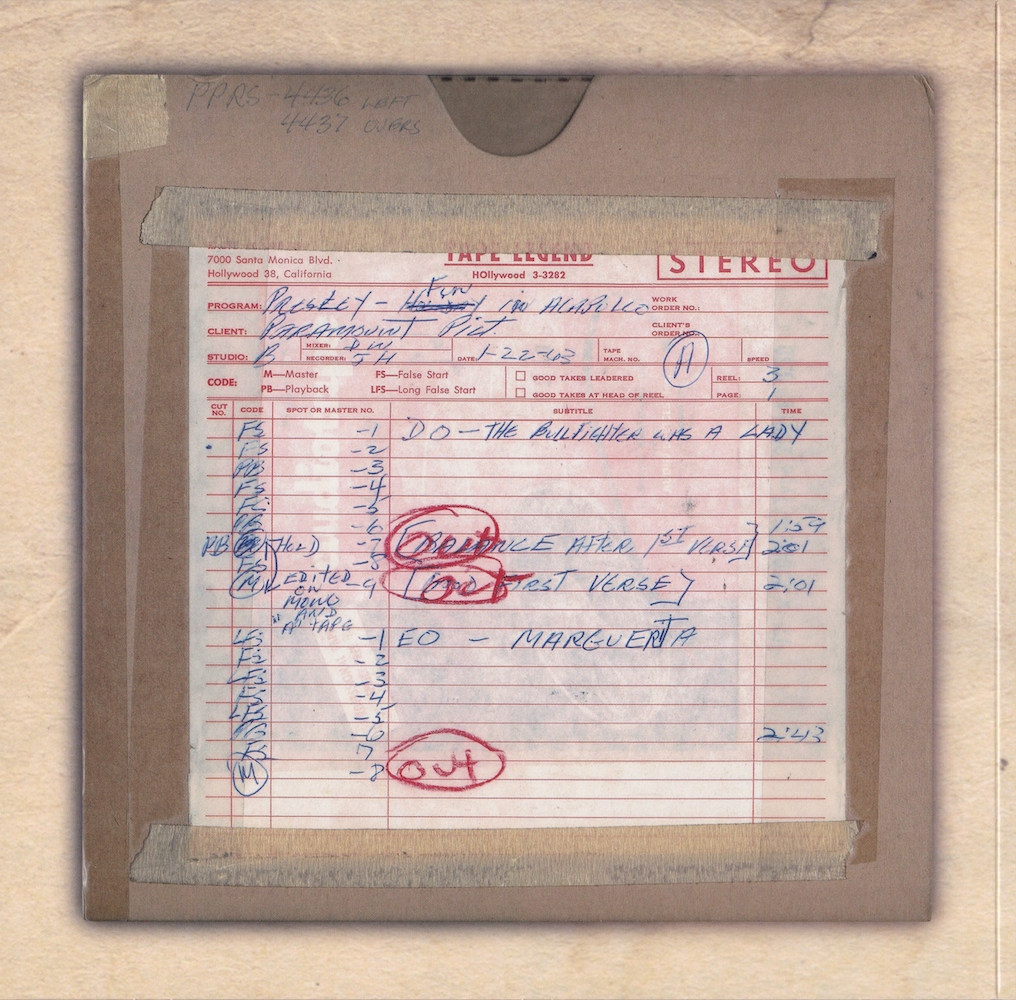 PPRS-4436 LEFT
4437 OVERS
TAPE LEGEND
STEREO
7000 Santa Monica Blvd.
Hollywood 38, California
HOllywood 3-3282
PROGRAM: PRESLEY - FUN IN ACAPULCO
WORK ORDER NO.:
CLIENT: PARAMOUNT PICT
CLIENT'S ORDER NO.:
STUDIO: B
MIXER: DW
RECORDER: JH
DATE: 1-22-63
TAPE MACH. NO. A
SPEED
CODE: M—Master FS—False Start
PB—Playback LFS—Long False Start
GOOD TAKES LEADERED
GOOD TAKES AT HEAD OF REEL
REEL: 3
PAGE: 1
CUT NO. CODE SPOT OR MASTER NO. SUBTITLE TIME
FS -1 DO - THE BULLFIGHTER WAS A LADY
FS -2
PB -3
FS -4
FS -5
-6 1:59
PB HOLD -7 OUT AFTER 1ST VERSE 2:01
FS -8
M EDITED ON MONO AND "A" TAPE -9 OUT FIRST VERSE) 2:01
LFS -1 EO - MARGUERITA
FS -2
-3
FS -4
LFS -5
-6 2:43
FS 7
M -8 OUT